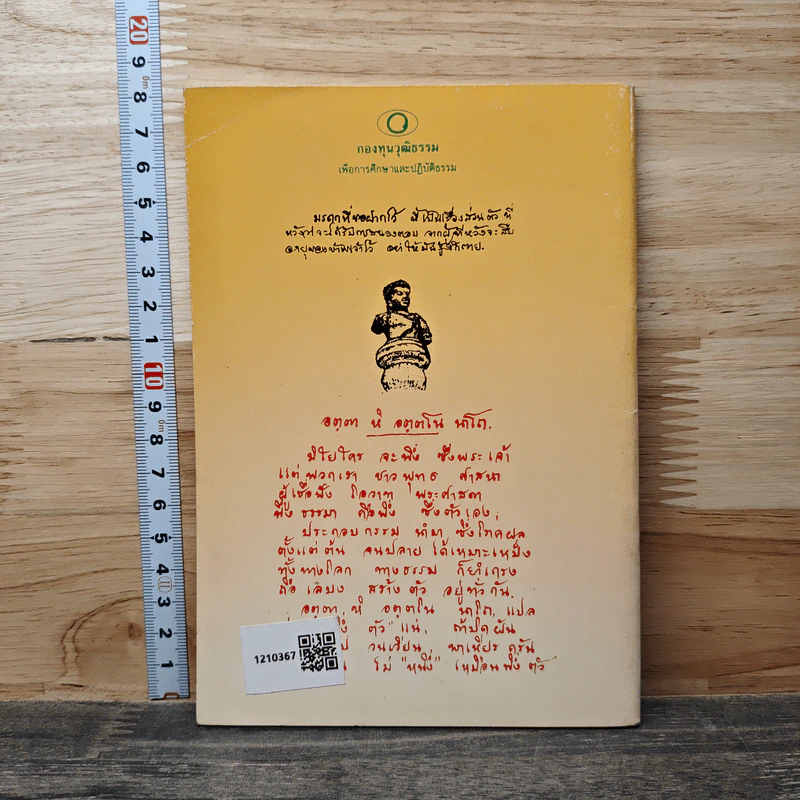 กองทุนวุฒิธรรม
เพื่อการศึกษาและปฏิบัติธรรม
มรดกที่ขอฝากไว้ นี้เป็นเรื่องส่วนตัว ที่
หวังว่าจะได้รับการสนองตอบ จากผู้ที่หวังจะสืบ
อายุของข้าพเจ้าไว้ อย่าให้มันรู้จักตาย.
อตฺตา หิ อตฺตโน นาโถ.
มิใยใคร จะพึ่ง ซึ่งพระเจ้า
แต่พวกเรา ชาวพุทธ ศาสนา
ผู้เชื่อฟัง โอวาท พระศาสดา
พึ่งธรรมา คือพึ่ง ซึ่งตัวเอง;
ประกอบกรรม นำมา ซึ่งโภคผล
ตั้งแต่ต้น จนปลาย ได้เหมาะเหม็ง
ทั้งทางโลก ทางธรรม ก็ยำเกรง
ถือ สร้างตัว อยู่ทั่วกัน.
อตฺตา หิ อตฺตโน นาโถ, แปล
ตัว" แน่,
วนเวียน พาเหียร ครัน
โม่ "หนึ่ง" เหมือนพึ่งตัว
1210367
20
9
8
7
6
5
4
3
2
1
10
9
8
7
6
5
4
3
2
1